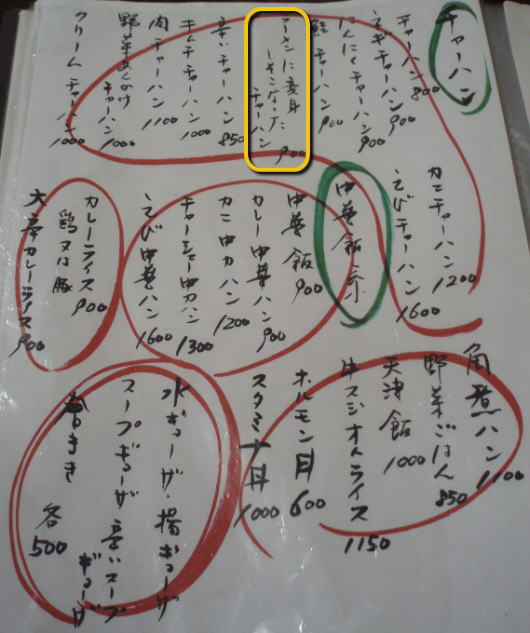 チャーハン
チャーハン 800
ネギチャーハン 900
にんにくチャーハン 900
鮭チャーハン 900
ラーメンに変身
しそこなった
チャーハン 900
辛いチャーハン 850
キムチチャーハン 1000
肉チャーハン 1100
野菜あんかけ
チャーハン 1000
クリームチャーハン 1000
カニチャーハン 1200
えびチャーハン 1600
中華飯系
中華飯 900
カレー中華ハン 900
カニ中カハン 1200
チャーシュー中カハン 1300
えび中華ハン 1600
カレーライス
鶏又は豚 900
大辛カレーライス 900
角煮ハン 1100
野菜ごはん 850
天津飯 1000
牛スジオムライス 1150
ホルモン丼 600
スタミナ丼 1000
水ギョーザ・揚ギョーザ
スープギョーザ 辛いスープ
ギョーザ
春まき 各500